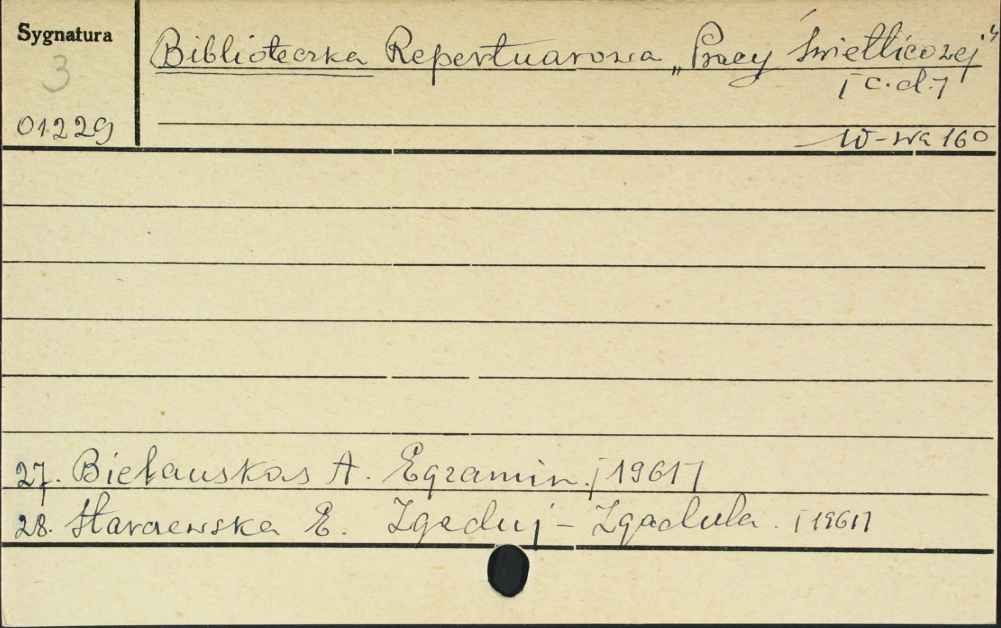 Sygnatura
3
01229
Biblioteczka Repertuarowa „Pracy Świetlicowej"
[c.d.]
W-wa 160
27. Bielauskas A. Egzamin. [1961]
28. E. Zgaduj - Zgadula. [1961]